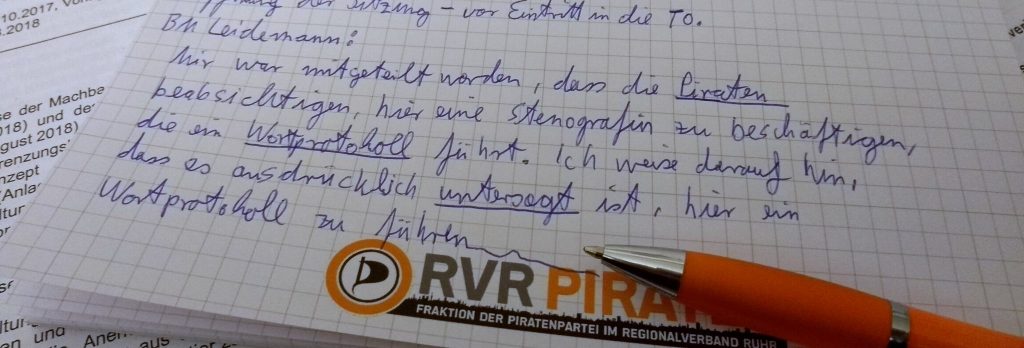 10.2017,
.2018
der Sitzung – vor Eintritt in die TO.
BM Leidemann:
Mir war mitgeteilt worden, dass die Piraten
beabsichtigen, hier eine Stenografin zu beschäftigen,
die ein Wortprotokoll führt. Ich weise darauf hin,
dass es ausdrücklich untersagt ist, hier ein
Wortprotokoll zu führen
se der Machba
018) und de
gust 2018)
renzungs
nzept
(Anla
ltur
or
RVR PIRATE
FRAKTION DER PIRATENPARTEI IM REGIONALVERBAND RUHR
ltur
en und
aus